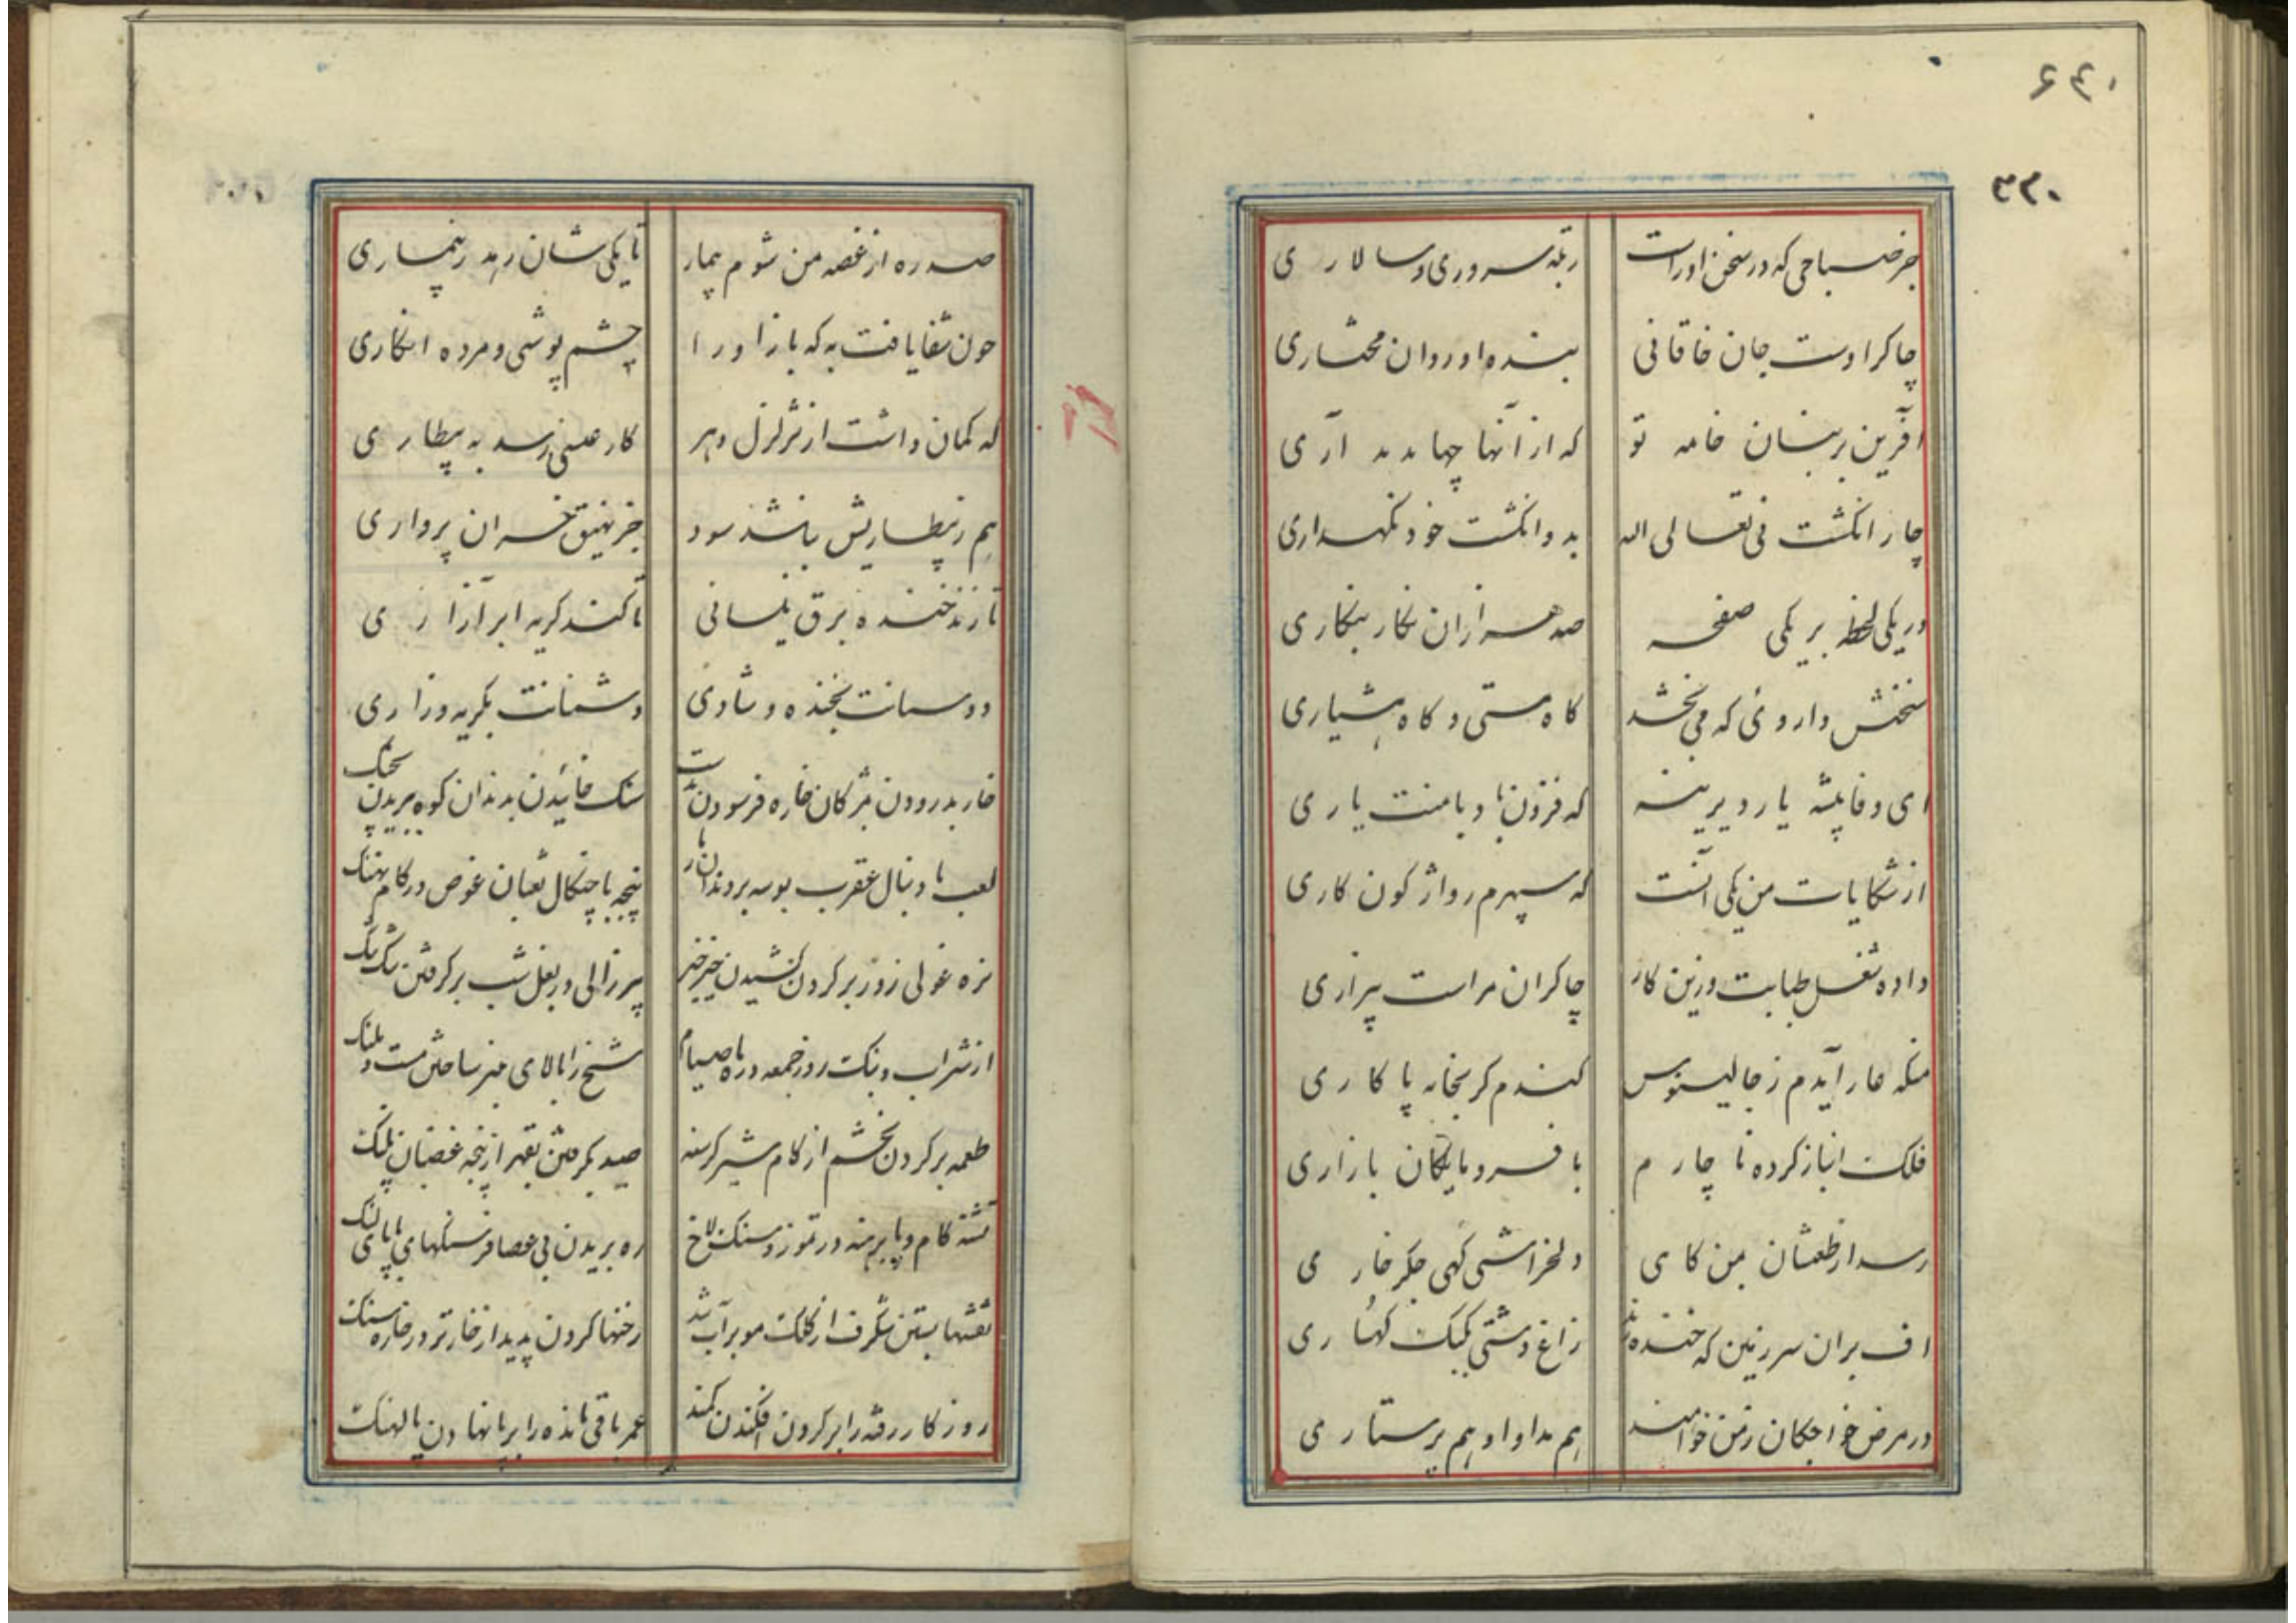 ۶۴۰
۳۳۰
جز صباحی که در سخن اوراست رتبه سروری و سالاری
چاکر اوست جان خاقانی بنده او روان مختاری
آفرین بر بنان خامه تو که از آنها چها پدید آری
چار انگشت نی تعالی الله به دو انگشت خود نگهداری
در یکی لحظه بر یکی صفحه صد هزاران نگار بنگاری
سخنش داروئی که می بخشد کاه مستی و کاه هشیاری
ای وفا پیشه یار دیرینه که فزون با دبا منت یاری
از شکایات من یکی آنست که سپهرم ز واژگون کاری
داده شغل طبابت و زین کار چاکران مراست بیزاری
منکه عار آیدم ز جالینوس کندم گر بخانه پاکاری
فلک انباز کرده ناچارم با فرومایکان بازاری
رسد از طعنشان بمن کاهی دلخراشی کهی جگر خاری
اف بر آن سرزمین که خنده زند زاغ دشتی بکبک کهساری
در مرض خواجکان ز من خواهند هم مداوا و هم پرستاری
صدره از غصه من شوم بیمار تا یکی شان رهد ز بیماری
چون شفا یافت به که باز او را چشم پوشی و مرده انکاری
که کمان داشت از تزلزل دهر کار عیسی رسد به بیطاری
هم ز بیطاریش نباشد سود جز نهیق خران پرواری
تا زند خنده برق نیسانی تا کند کریه ابر آزاری
دوستانت بخنده و شادی دشمنانت بکریه و زاری
خار بدرودن بمژکان خاره فرسودن بدست سنک خائیدن بدندان کوه ببریدن بچنک
لعب با دنبال عقرب بوسه بر دندان مار پنجه با چنکال ثعبان غوص در کام نهنک
نره غولی روز بر کردن کشیدن خیر خیر پیر زالی در بغل شب بر کرفتن تنک تنک
از شراب و بنک روز جمعه در ماه صیام شیخ را بالای منبر ساختن مست و ملنک
طعمه بر کردن بخشم از کام شیر کرسنه صید بکرفتن بقهر از پنجه غضبان پلنک
تشنه کام و پا برهنه در تموز و سنک لاخ ره بریدن بی عصا فرسنکها با پای لنک
نقشها بستن شکرف از کلک مو بر آب تند رخنها کردن پدید از خار تر در خاره سنک
روزکار رفته را بر کردن افکندن کمند عمر باقی مانده را بر پا نهادن پالهنک